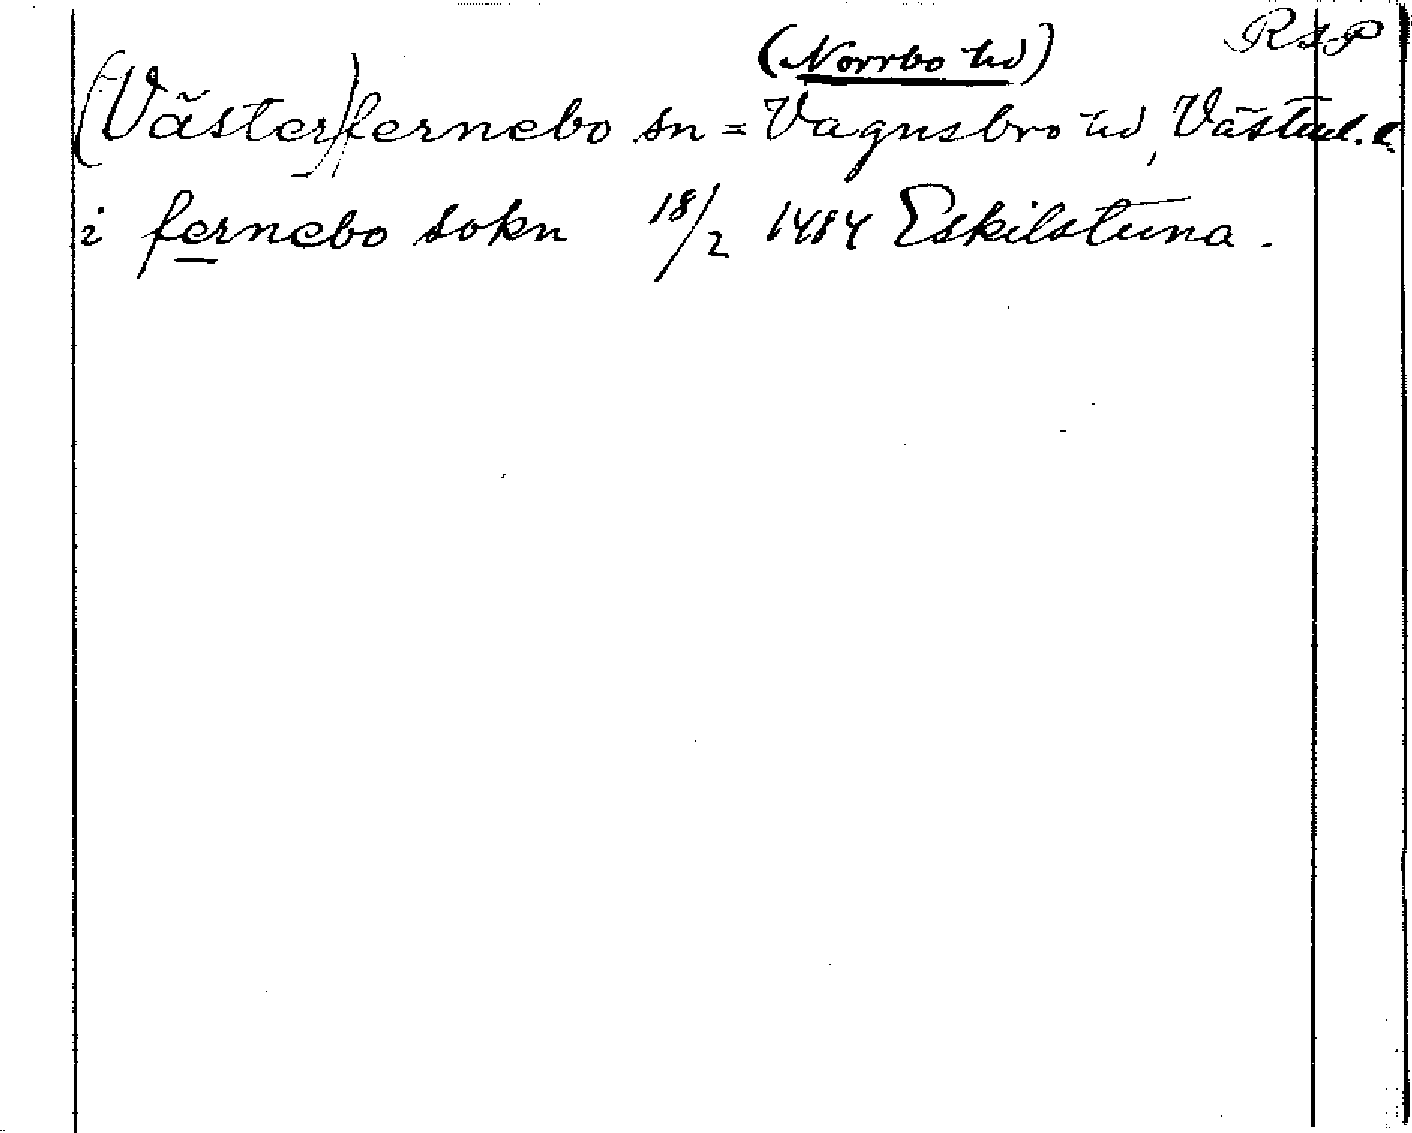 RAP
(Norrbo hd)
(Väster)fernebo sn = Vagnsbro hd, Västml. l.
i fernebo sokn 18/2 1484 Eskilstuna.